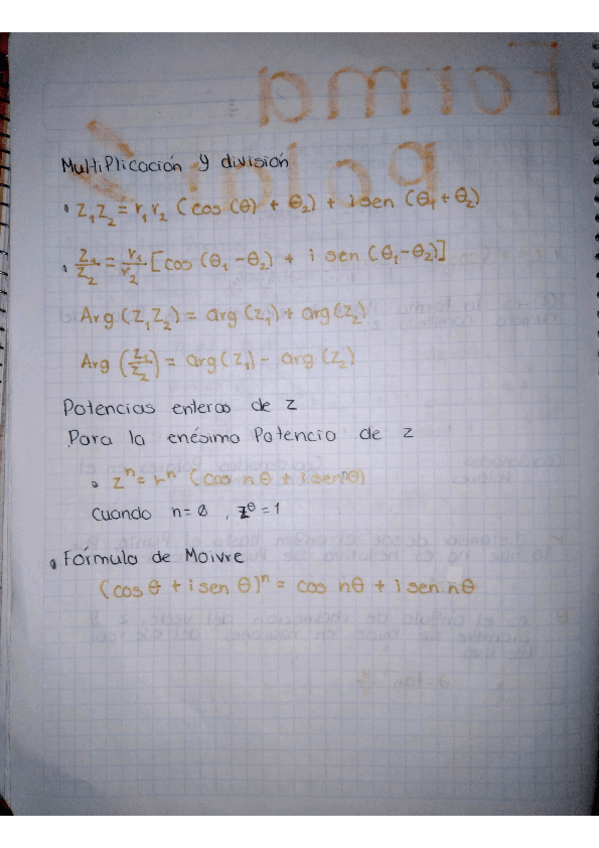 Multiplicación y división
• z₁z₂ = r₁r₂ (cos (θ) + θ₂) + i sen (θ₁ + θ₂)
• z₁/z₂ = r₁/r₂ [cos (θ₁ - θ₂) + i sen (θ₁ - θ₂)]
Arg (z₁z₂) = arg (z₁) + arg (z₂)
Arg (z₁/z₂) = arg (z₁) - arg (z₂)
Potencias enteras de z
Para la enésimo Potencio de z
• zⁿ = rⁿ (cos n θ + i sen nθ)
cuando n = 0 , z⁰ = 1
• Fórmula de Moivre
(cos θ + i sen θ)ⁿ = cos nθ + i sen nθ